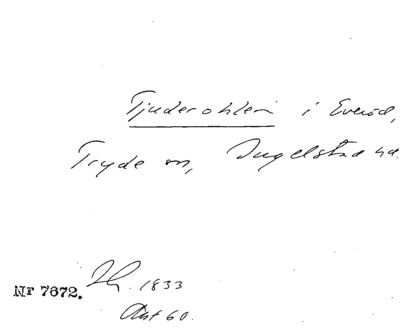 Tjuderohlen i Everöd,
Tryde sn, Ingelstad hd.
Nr 7672. 1833
Akt 60.